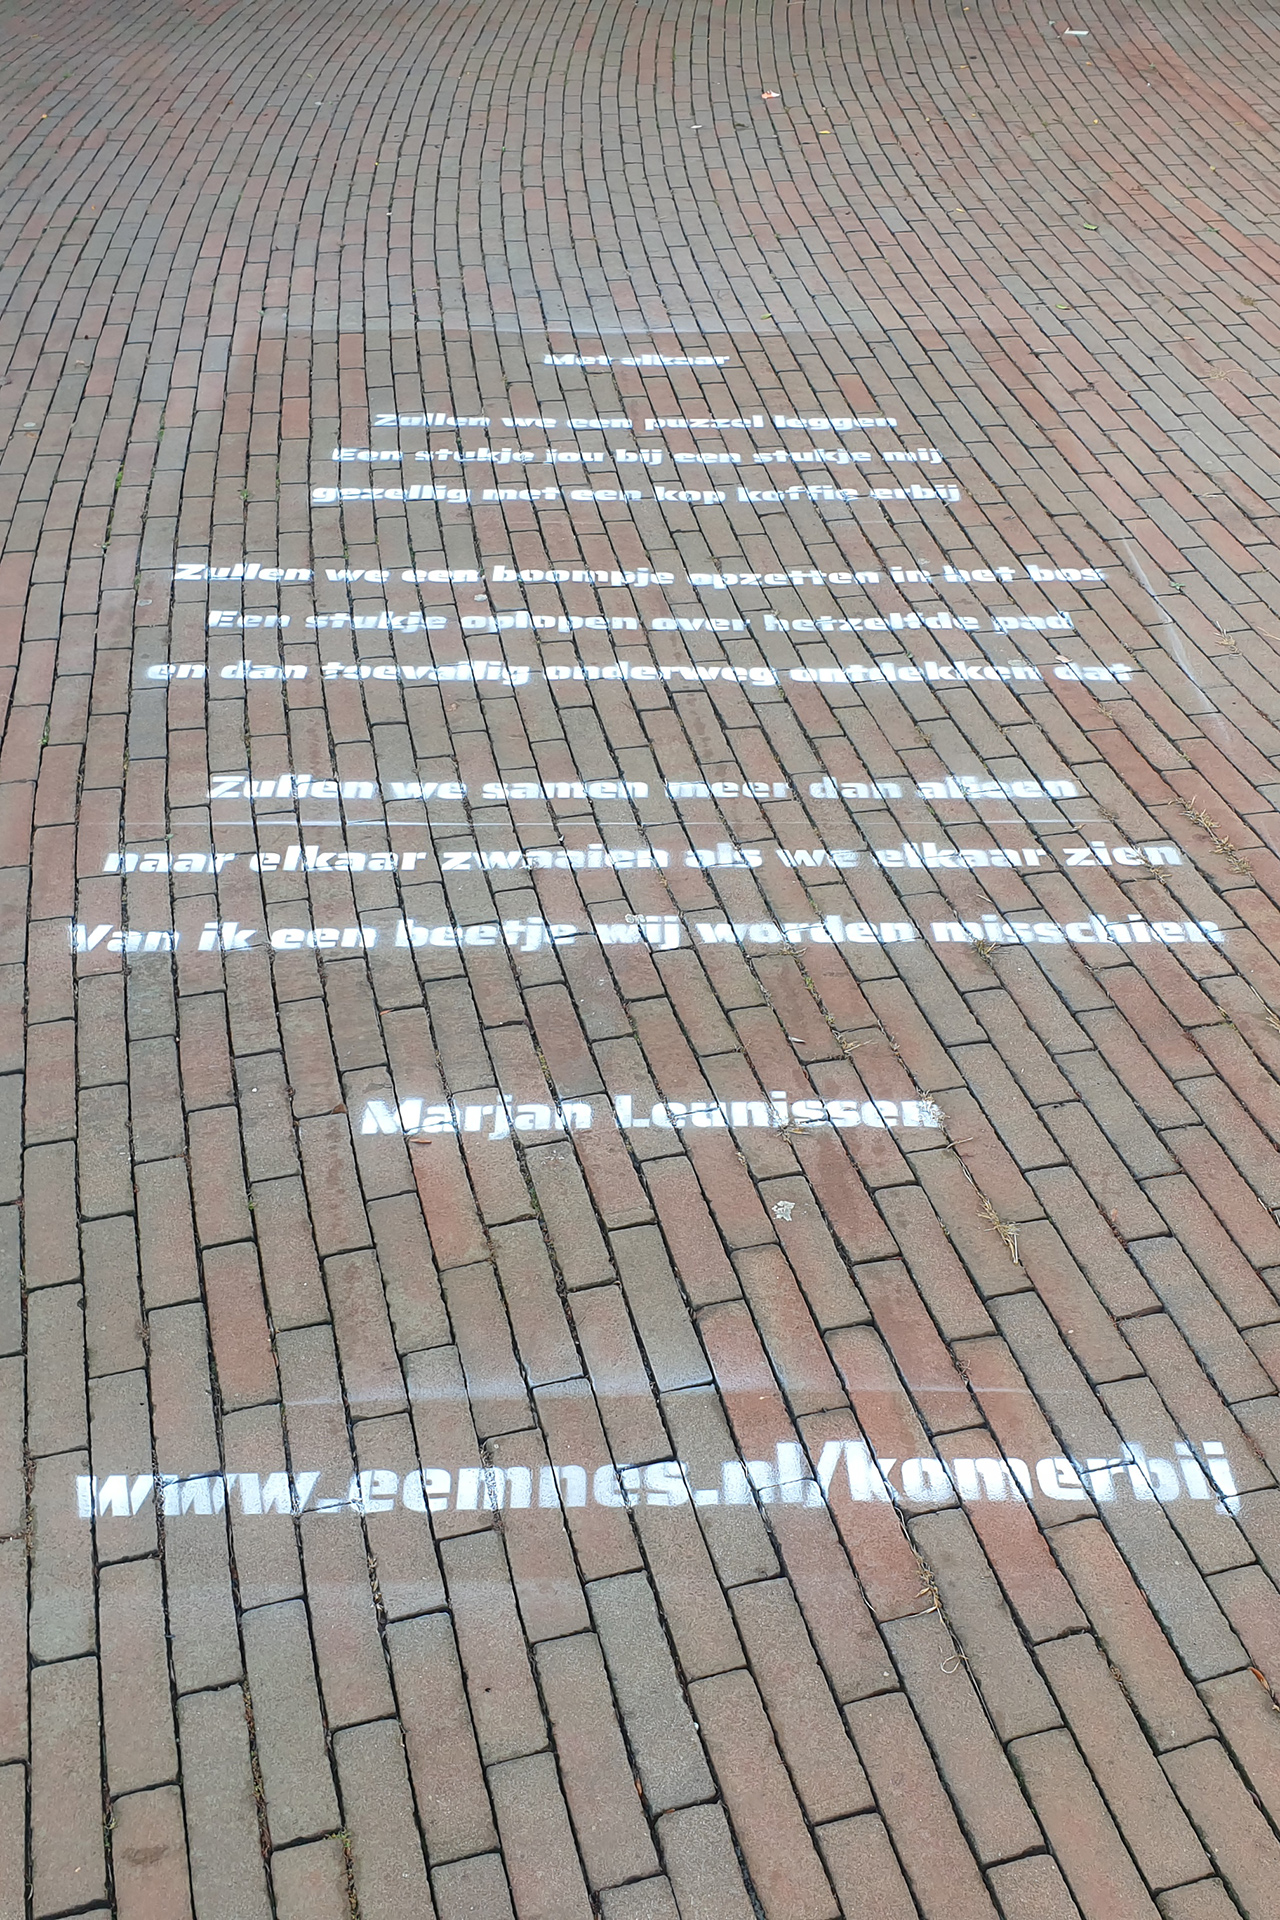 Met elkaar
Zullen we een puzzel leggen
Een stukje jou bij een stukje mij
gezellig met een kop koffie erbij
Zullen we een boompje opzetten in het bos
Een stukje oplopen over hetzelfde pad
en dan toevallig onderweg ontdekken dat
Zullen we samen meer dan alleen
naar elkaar zwaaien als we elkaar zien
Van ik een beetje wij worden misschien
Marjan Leunissen
www.eemnes.nl/komerbij